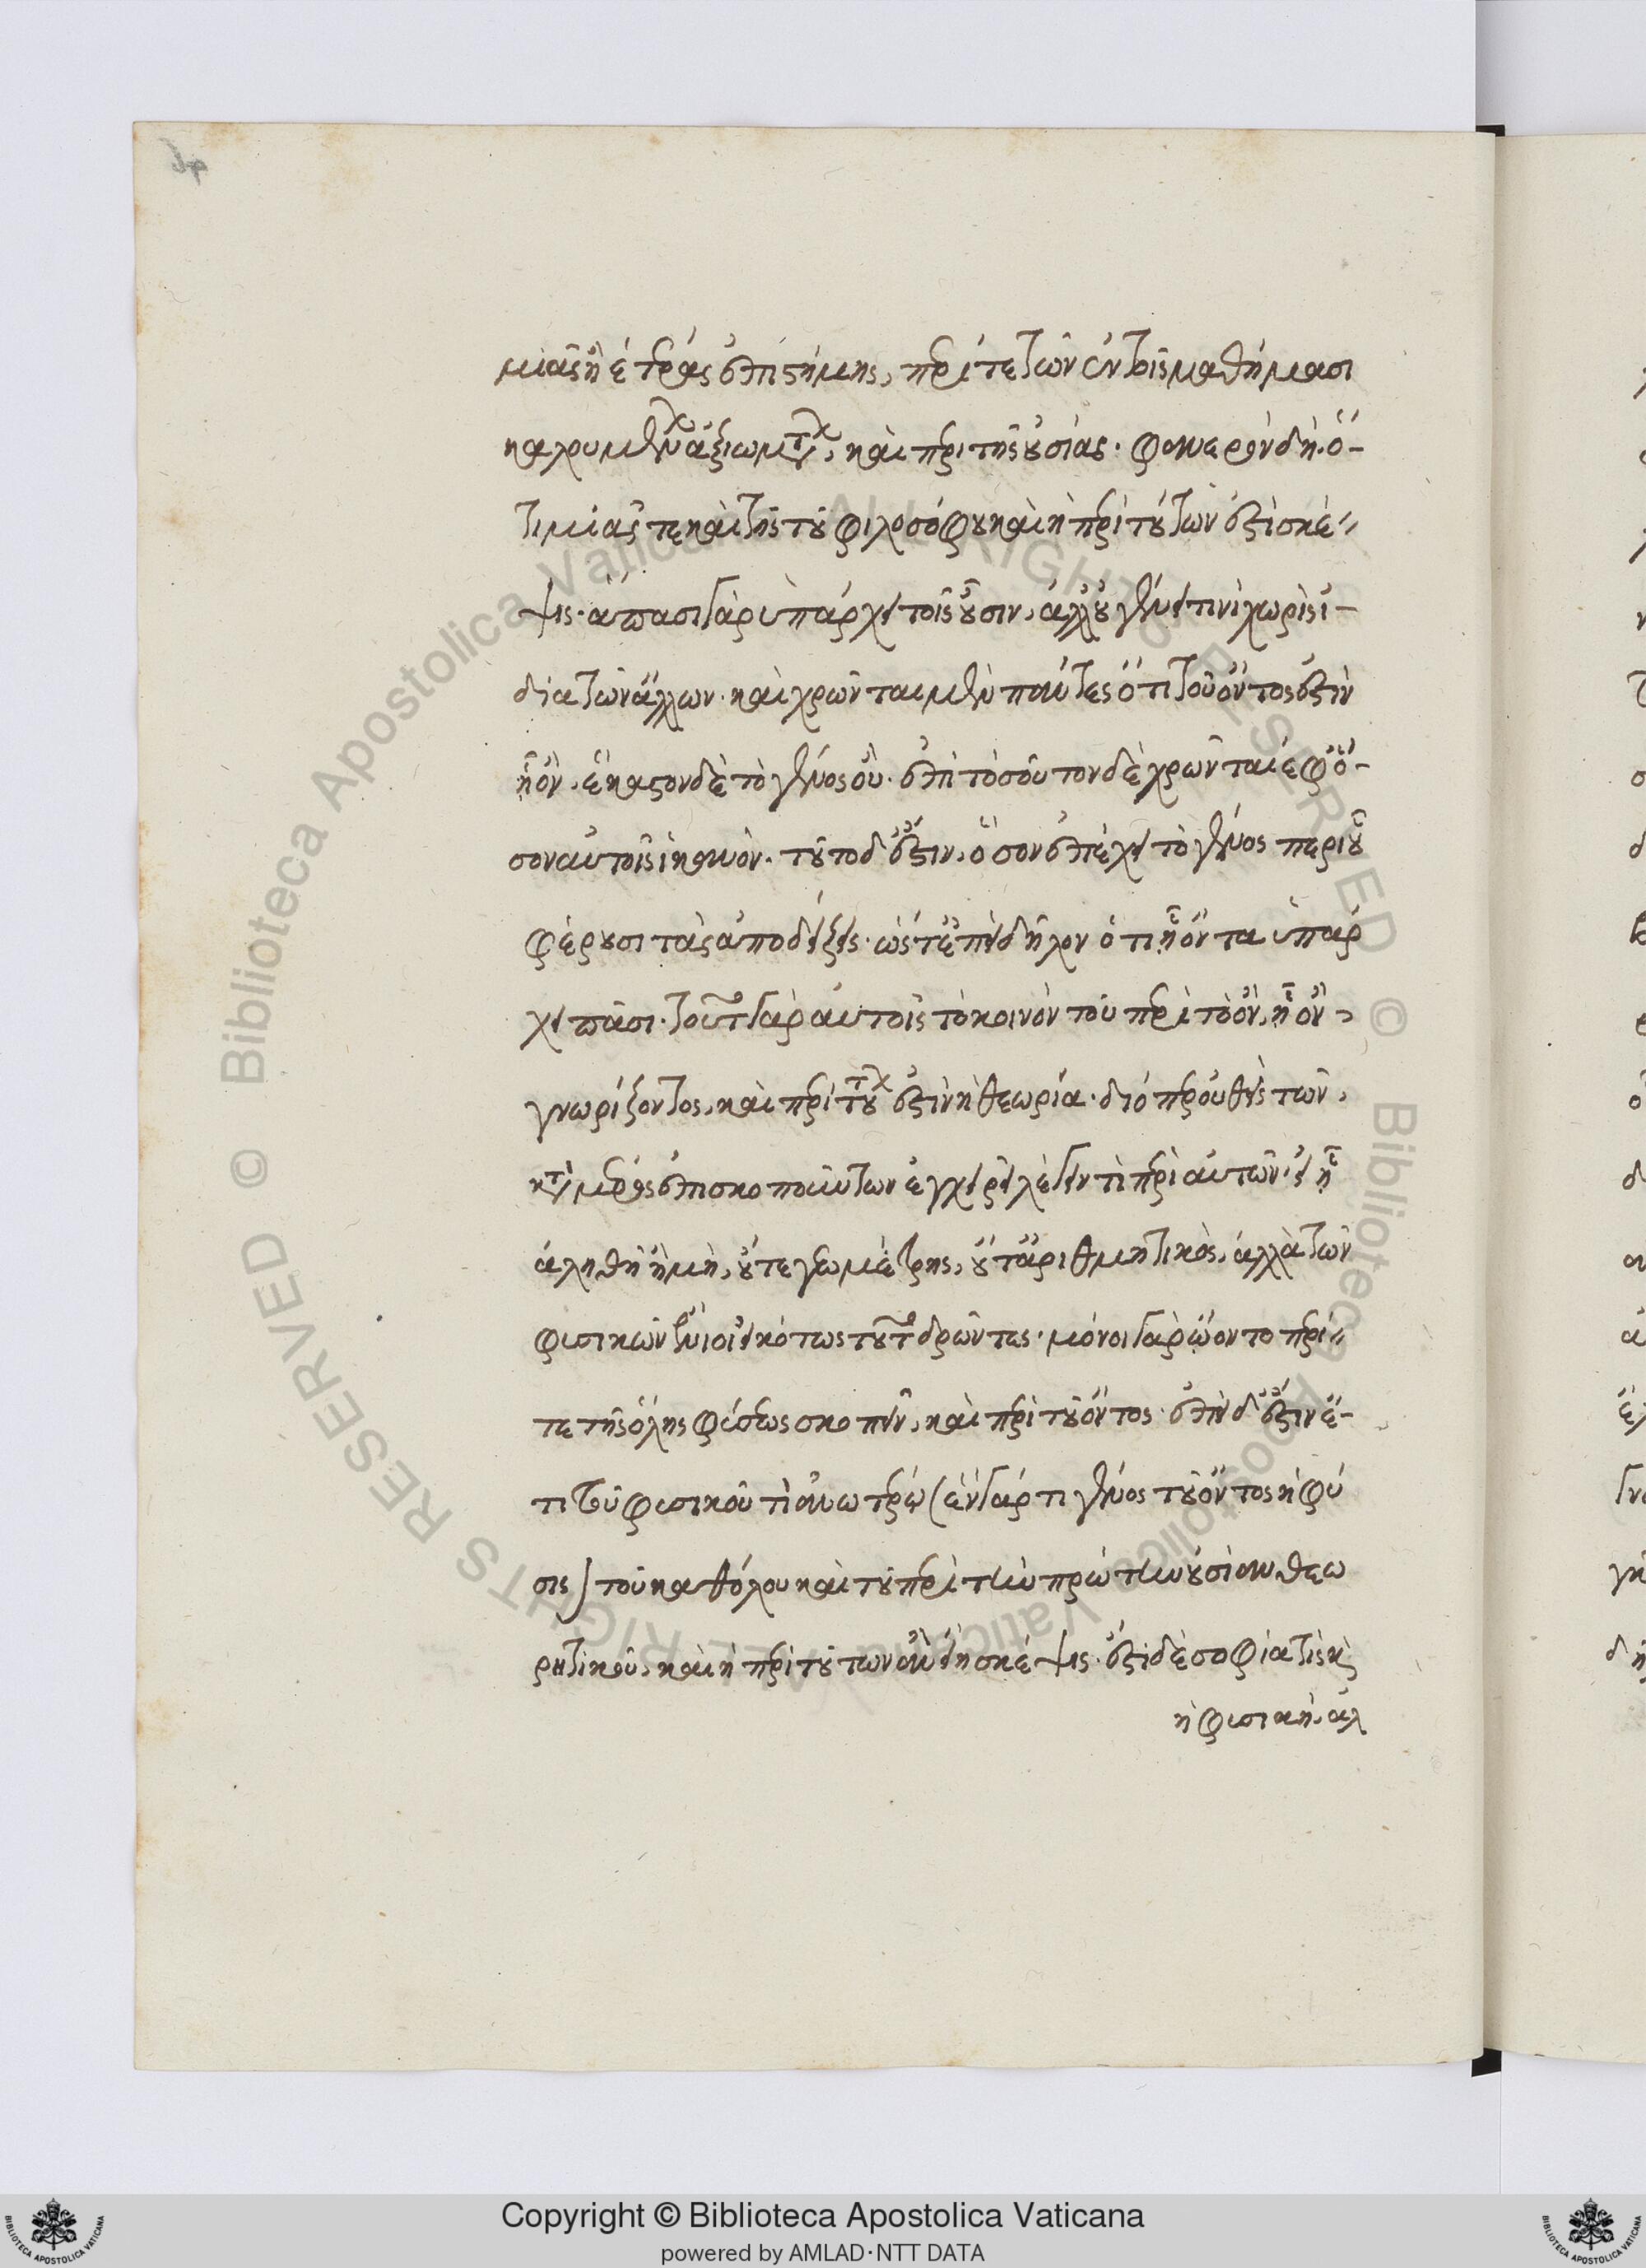 μιᾶς ἢ ἑτέρας ἐπιστήμης, περί τε τῶν ἐν τοῖς μαθήμασι
καλουμένων ἀξιωμάτων, καὶ περὶ τῆς οὐσίας. φανερὸν δὴ ὅ-
τι μιᾶς τε καὶ τῆς τοῦ φιλοσόφου καὶ ἡ περὶ τούτων ἐστὶ σκέ-
ψις. ἅπασι γὰρ ὑπάρχει τοῖς οὖσιν, ἀλλ' οὐ γένει τινὶ χωρὶς ἰ-
δίᾳ τῶν ἄλλων. καὶ χρῶνται μὲν πάντες ὅτι τοῦ ὄντος ἐστὶν
ᾗ ὄν. ἕκαστον δὲ τὸ γένος ὄν. ἐπὶ τοσοῦτον δὲ χρῶνται ἐφ' ὅ-
σον αὐτοῖς ἱκανόν. τοῦτο δ' ἔστιν, ὅσον ἐπέχει τὸ γένος περὶ οὗ
φέρουσι τὰς ἀποδείξεις. ὥστ' ἐπεὶ δῆλον ὅτι ᾗ ὄντα ὑπάρ
χει πᾶσι. τοῦτο γὰρ αὐτοῖς τὸ κοινόν τοῦ περὶ τὸ ὄν, ᾗ ὄν,
γνωρίζοντος, καὶ περὶ τούτων ἐστὶν ἡ θεωρία. διόπερ οὐθεὶς τῶν,
κατὰ μέρος ἐπισκοπούντων ἐγχειρεῖ λέγειν τι περὶ αὐτῶν. εἰ ἦ
ἀληθῆ ἢ μή, οὔτε γεωμέτρης, οὔτ' ἀριθμητικός, ἀλλὰ τῶν
φυσικῶν ἔνιοι εἰκότως τοῦτο δρῶντες. μόνοι γὰρ ᾤοντο περί
τε τῆς ὅλης φύσεως σκοπεῖν, καὶ περὶ τοῦ ὄντος. ἐπεὶ δ' ἔστιν ἔ-
τι τοῦ φυσικοῦ τὶ ἀνωτέρω (ἓν γάρ τι γένος τοῦ ὄντος ἡ φύ
σις) τοῦ καθόλου καὶ τοῦ περὶ τὴν πρώτην οὐσίαν θεω
ρητικοῦ, καὶ ἡ περὶ τούτων ἂν εἴη σκέψις. ἔστι δὲ σοφία τὶς καὶ
ἡ φυσική. ἀλ
Copyright © Biblioteca Apostolica Vaticana
powered by AMLAD·NTT DATA